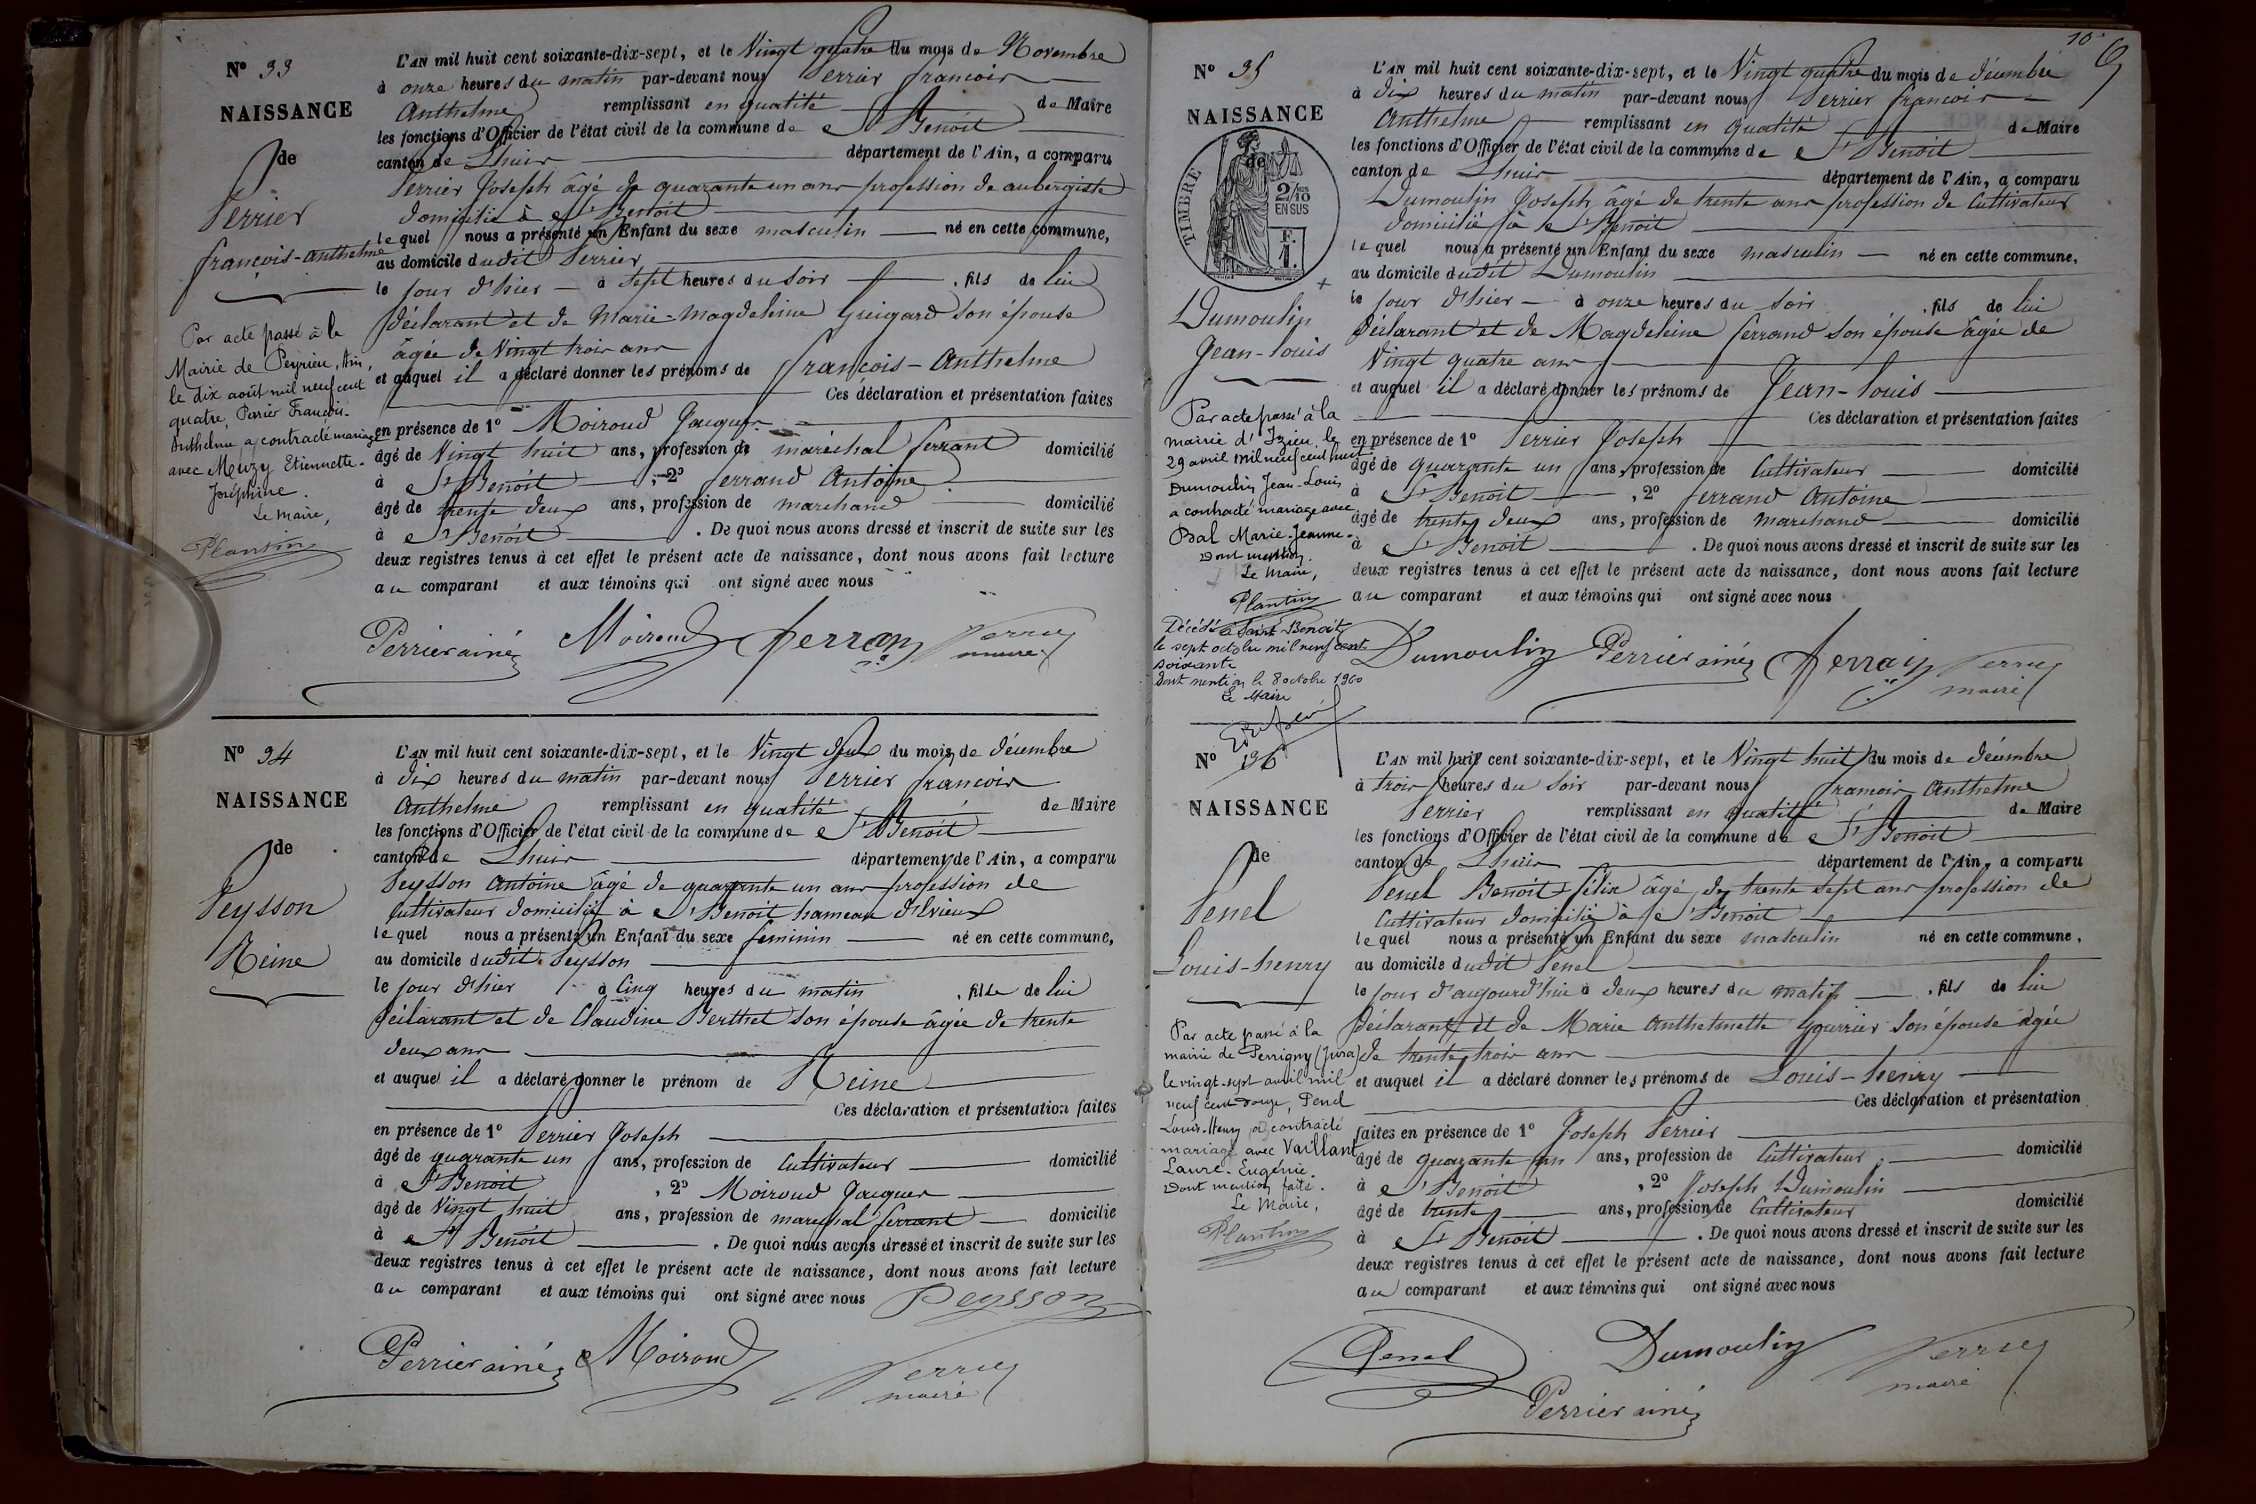 N° 33
NAISSANCE
de
Perrier
françois-anthelme
Par acte passé à la
Mairie de Peyrieu, Ain,
le dix août mil neuf cent
quatre, Perrier François-
Anthelme a contracté mariage
avec Meuzy Etiennette-
Joséphine.
Le Maire,
Plantin
L'AN mil huit cent soixante-dix-sept, et le Vingt quatre du mois de Novembre
à onze heures du matin par-devant nous Perrier francois
Anthelme remplissant en qualité de Maire
les fonctions d'Officier de l'état civil de la commune de St Benoit
canton de Lhuis département de l'Ain, a comparu
Perrier Joseph âgé de quarante un ans profession de aubergiste
domicilié à St Benoit
lequel nous a présenté un Enfant du sexe masculin né en cette commune,
au domicile dudit Perrier
le jour d'hier à sept heures du soir , fils de lui
déclarant et de Marie-Magdeleine Guigard son épouse
âgée de Vingt trois ans
et auquel il a déclaré donner les prénoms de françois-Anthelme
Ces déclaration et présentation faites
en présence de 1° Moiroud Jacques
âgé de Vingt huit ans, profession de maréchal ferrant domicilié
à St Benoit , 2° ferrand Antoine
âgé de trente deux ans, profession de marchand domicilié
à St Benoit . De quoi nous avons dressé et inscrit de suite sur les
deux registres tenus à cet effet le présent acte de naissance, dont nous avons fait lecture
au comparant et aux témoins qui ont signé avec nous
Perrier ainé Moiroud ferrand Perrier
maire
N° 34
NAISSANCE
de
Peysson
Reine
L'AN mil huit cent soixante-dix-sept, et le Vingt deux du mois de décembre
à dix heures du matin par-devant nous Perrier francois
Anthelme remplissant en qualité de Maire
les fonctions d'Officier de l'état civil de la commune de St Benoit
canton de Lhuis département de l'Ain, a comparu
Peysson Antoine âgé de quarante un ans profession de
Cultivateur domicilié à St Benoit hameau d'Evieux
lequel nous a présenté un Enfant du sexe féminin né en cette commune,
au domicile dudit Peysson
le jour d'hier à Cinq heures du matin , fille de lui
déclarant et de Claudine Berthet son épouse âgée de trente
deux ans
et auquel il a déclaré donner le prénom de Reine
Ces déclaration et présentation faites
en présence de 1° Perrier Joseph
âgé de quarante un ans, profession de Cultivateur domicilié
à St Benoit , 2° Moiroud Jacques
âgé de Vingt huit ans, profession de marechal ferrant domicilié
à St Benoit . De quoi nous avons dressé et inscrit de suite sur les
deux registres tenus à cet effet le présent acte de naissance, dont nous avons fait lecture
au comparant et aux témoins qui ont signé avec nous Peysson
Perrier ainé Moiroud Perrier
maire
10
N° 35
NAISSANCE
de
TIMBRE
2/10 EN SUS
F. 1.
Dumoulin
Jean-louis
Par acte passé à la
mairie d'Izieu le
29 avril mil neuf cent huit
Dumoulin Jean-Louis
a contracté mariage avec
Bal Marie-Jeanne.
Dont mention.
Le Maire,
Plantin
Décédé à Saint Benoit
le sept octobre mil neuf cent
soixante
Dont mention le 8 octobre 1960
Le Maire
L'AN mil huit cent soixante-dix-sept, et le Vingt quatre du mois de décembre
à dix heures du matin par-devant nous Perrier francois
Anthelme remplissant en qualité de Maire
les fonctions d'Officier de l'état civil de la commune de St Benoit
canton de Lhuis département de l'Ain, a comparu
Dumoulin Joseph âgé de trente ans profession de Cultivateur
domicilié à St Benoit
lequel nous a présenté un Enfant du sexe masculin né en cette commune,
au domicile dudit Dumoulin
le jour d'hier à onze heures du soir , fils de lui
déclarant et de Magdeleine ferrand son épouse âgée de
Vingt quatre ans
et auquel il a déclaré donner les prénoms de Jean-louis
Ces déclaration et présentation faites
en présence de 1° Perrier Joseph
âgé de quarante un ans, profession de Cultivateur domicilié
à St Benoit , 2° ferrand Antoine
âgé de trente deux ans, profession de marchand domicilié
à St Benoit . De quoi nous avons dressé et inscrit de suite sur les
deux registres tenus à cet effet le présent acte de naissance, dont nous avons fait lecture
au comparant et aux témoins qui ont signé avec nous
Dumoulin Perrier ainé ferrand Perrier
maire
N° 36
NAISSANCE
de
Penel
Louis-henry
Par acte passé à la
mairie de Perrigny (Jura)
le vingt-sept avril mil
neuf cent douze, Penel
Louis-Henry a contracté
mariage avec Vaillant
Laure-Eugénie.
Dont mention faite.
Le Maire,
Plantin
L'AN mil huit cent soixante-dix-sept, et le Vingt huit du mois de décembre
à trois heures du soir par-devant nous francois Anthelme
Perrier remplissant en qualité de Maire
les fonctions d'Officier de l'état civil de la commune de St Benoit
canton de Lhuis département de l'Ain, a comparu
Penel Benoit félix âgé de trente sept ans profession de
Cultivateur domicilié à St Benoit
lequel nous a présenté un Enfant du sexe masculin né en cette commune,
au domicile dudit Penel
le jour d'aujourd'hui à deux heures du matin , fils de lui
déclarant et de Marie Anthelmette Gourrier son épouse âgée
de trente trois ans
et auquel il a déclaré donner les prénoms de Louis-henry
Ces déclaration et présentation
faites en présence de 1° Joseph Perrier
âgé de quarante un ans, profession de Cultivateur domicilié
à St Benoit , 2° Joseph Dumoulin
âgé de trente ans, profession de Cultivateur domicilié
à St Benoit . De quoi nous avons dressé et inscrit de suite sur les
deux registres tenus à cet effet le présent acte de naissance, dont nous avons fait lecture
au comparant et aux témoins qui ont signé avec nous
Penel Dumoulin Perrier
maire
Perrier ainé